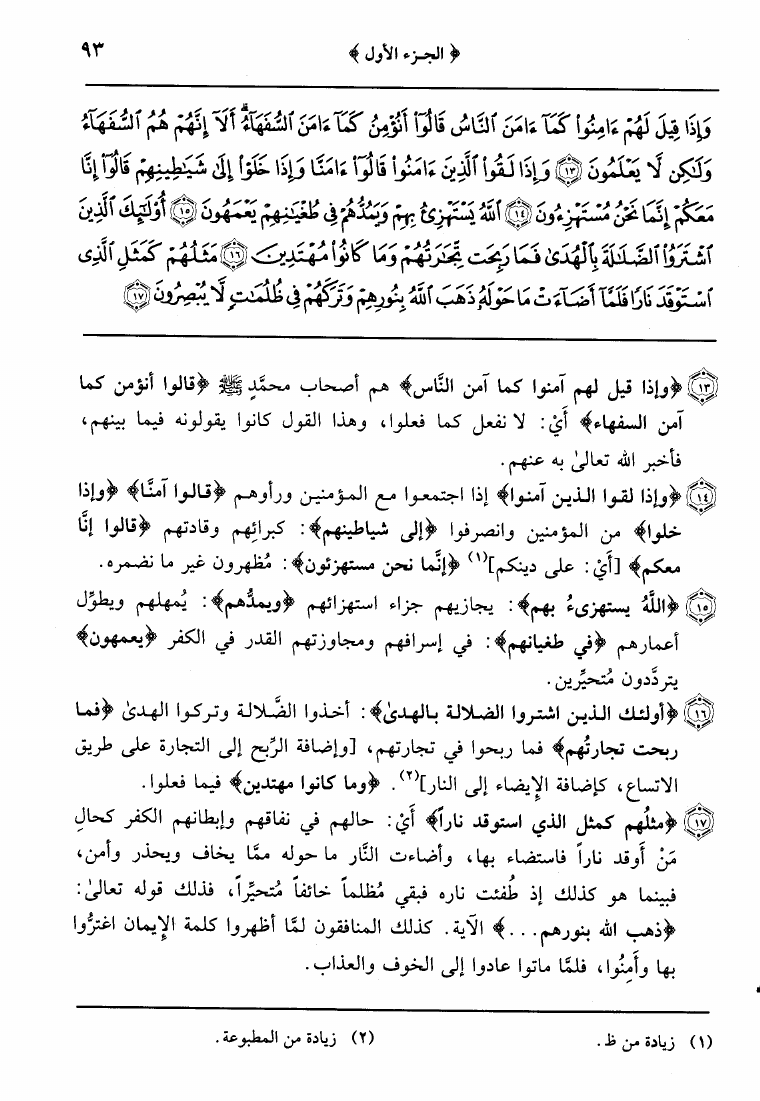 ﴿ الجزء الأول ﴾ ٩٣
وَإِذَا قِيلَ لَهُمْ ءَامِنُوا۟ كَمَآ ءَامَنَ ٱلنَّاسُ قَالُوٓا۟ أَنُؤْمِنُ كَمَآ ءَامَنَ ٱلسُّفَهَآءُ ۗ أَلَآ إِنَّهُمْ هُمُ ٱلسُّفَهَآءُ
وَلَـٰكِن لَّا يَعْلَمُونَ ﴿١٣﴾ وَإِذَا لَقُوا۟ ٱلَّذِينَ ءَامَنُوا۟ قَالُوٓا۟ ءَامَنَّا وَإِذَا خَلَوْا۟ إِلَىٰ شَيَـٰطِينِهِمْ قَالُوٓا۟ إِنَّا
مَعَكُمْ إِنَّمَا نَحْنُ مُسْتَهْزِءُونَ ﴿١٤﴾ ٱللَّهُ يَسْتَهْزِئُ بِهِمْ وَيَمُدُّهُمْ فِى طُغْيَـٰنِهِمْ يَعْمَهُونَ ﴿١٥﴾ أُو۟لَـٰٓئِكَ ٱلَّذِينَ
ٱشْتَرَوُا۟ ٱلضَّلَـٰلَةَ بِٱلْهُدَىٰ فَمَا رَبِحَت تِّجَـٰرَتُهُمْ وَمَا كَانُوا۟ مُهْتَدِينَ ﴿١٦﴾ مَثَلُهُمْ كَمَثَلِ ٱلَّذِى
ٱسْتَوْقَدَ نَارًا فَلَمَّآ أَضَآءَتْ مَا حَوْلَهُۥ ذَهَبَ ٱللَّهُ بِنُورِهِمْ وَتَرَكَهُمْ فِى ظُلُمَـٰتٍ لَّا يُبْصِرُونَ ﴿١٧﴾
﴿١٣﴾ ﴿وإذا قيل لهم آمنوا كما آمن النَّاس﴾ هم أصحاب محمَّدٍ ﷺ ﴿قالوا أنؤمن كما
آمن السفهاء﴾ أَيْ: لا نفعل كما فعلوا، وهذا القول كانوا يقولونه فيما بينهم،
فأخبر الله تعالىٰ به عنهم.
﴿١٤﴾ ﴿وإذا لقوا الذين آمنوا﴾ إذا اجتمعوا مع المؤمنين ورأوهم ﴿قالوا آمنَّا﴾ ﴿وإذا
خلوا﴾ من المؤمنين وانصرفوا ﴿إلى شياطينهم﴾: كبرائِهم وقادتهم ﴿قالوا إنَّا
معكم﴾ [أَيْ: على دينكم](١) ﴿إنَّما نحن مستهزئون﴾: مُظهرون غير ما نضمره.
﴿١٥﴾ ﴿اللَّهُ يستهزىءُ بهم﴾: يجازيهم جزاء استهزائهم ﴿ويمدُّهم﴾: يُمهلهم ويطوِّل
أعمارهم ﴿في طغيانهم﴾: في إسرافهم ومجاوزتهم القدر في الكفر ﴿يعمهون﴾
يتردَّدون مُتحيِّرين.
﴿١٦﴾ ﴿أولئك الذين اشتروا الضلالة بالهدىٰ﴾: أخذوا الضَّلالة وتركوا الهدىٰ ﴿فما
ربحت تجارتُهم﴾ فما ربحوا في تجارتهم، [وإضافة الرِّبح إلى التجارة على طريق
الاتساع، كإضافة الإِيضاء إلى النار](٢). ﴿وما كانوا مهتدين﴾ فيما فعلوا.
﴿١٧﴾ ﴿مثلُهم كمثل الذي استوقد ناراً﴾ أَيْ: حالهم في نفاقهم وإبطانهم الكفر كحالِ
مَنْ أَوقد ناراً فاستضاء بها، وأضاءت النَّار ما حوله ممَّا يخاف ويحذر وأمن،
فبينما هو كذلك إذ طُفئت ناره فبقي مُظلماً خائفاً مُتحيِّراً، فذلك قوله تعالىٰ:
﴿ذهب الله بنورهم...﴾ الآية. كذلك المنافقون لمَّا أظهروا كلمة الإِيمان اغترُّوا
بها وأَمِنُوا، فلمَّا ماتوا عادوا إلى الخوف والعذاب.
(١) زيادة من ظ. (٢) زيادة من المطبوعة.